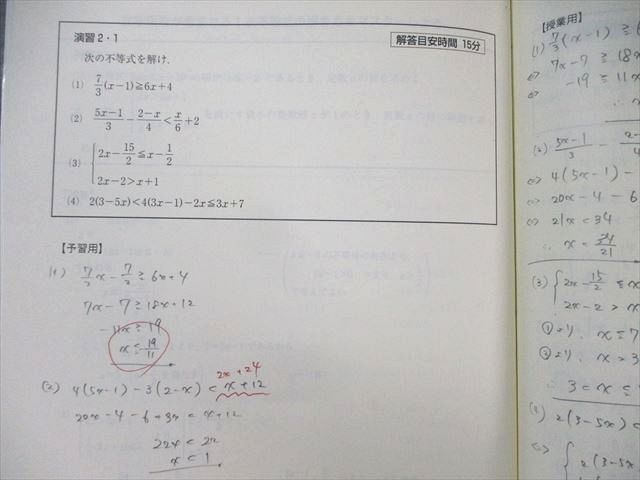 演習2・1
解答目安時間 15分
次の不等式を解け.
(1) 7/3(x−1)≧6x+4
(2) (5x−1)/3−(2−x)/4<x/6+2
(3) {2x−15/2≦x−1/2
2x−2>x+1
(4) 2(3−5x)<4(3x−1)−2x≦3x+7
【予習用】
(1) 7/3x−7/3≧6x+4
7x−7≧18x+12
−11x≧19
x≦19/11
(2) 4(5x−1)−3(2−x)<x+12
2x+24
20x−4−6+3x<x+12
22x<22
x<1
【授業用】
(1) 7/3(x−1)≧6
7x−7≧18x
⇔ −19≧11x
∴
(2) (5x−1)/3 −
⇔ 4(5x−1)−
⇔ 20x−4−6
⇔ 21x<34
∴ x<34/21
(3) {2x−15/2≦x
2x−2>x
①より. x≦7
②より. x>3
∴ 3<x≦
(4) 2(3−5x)<
⇔ {2(3−5x